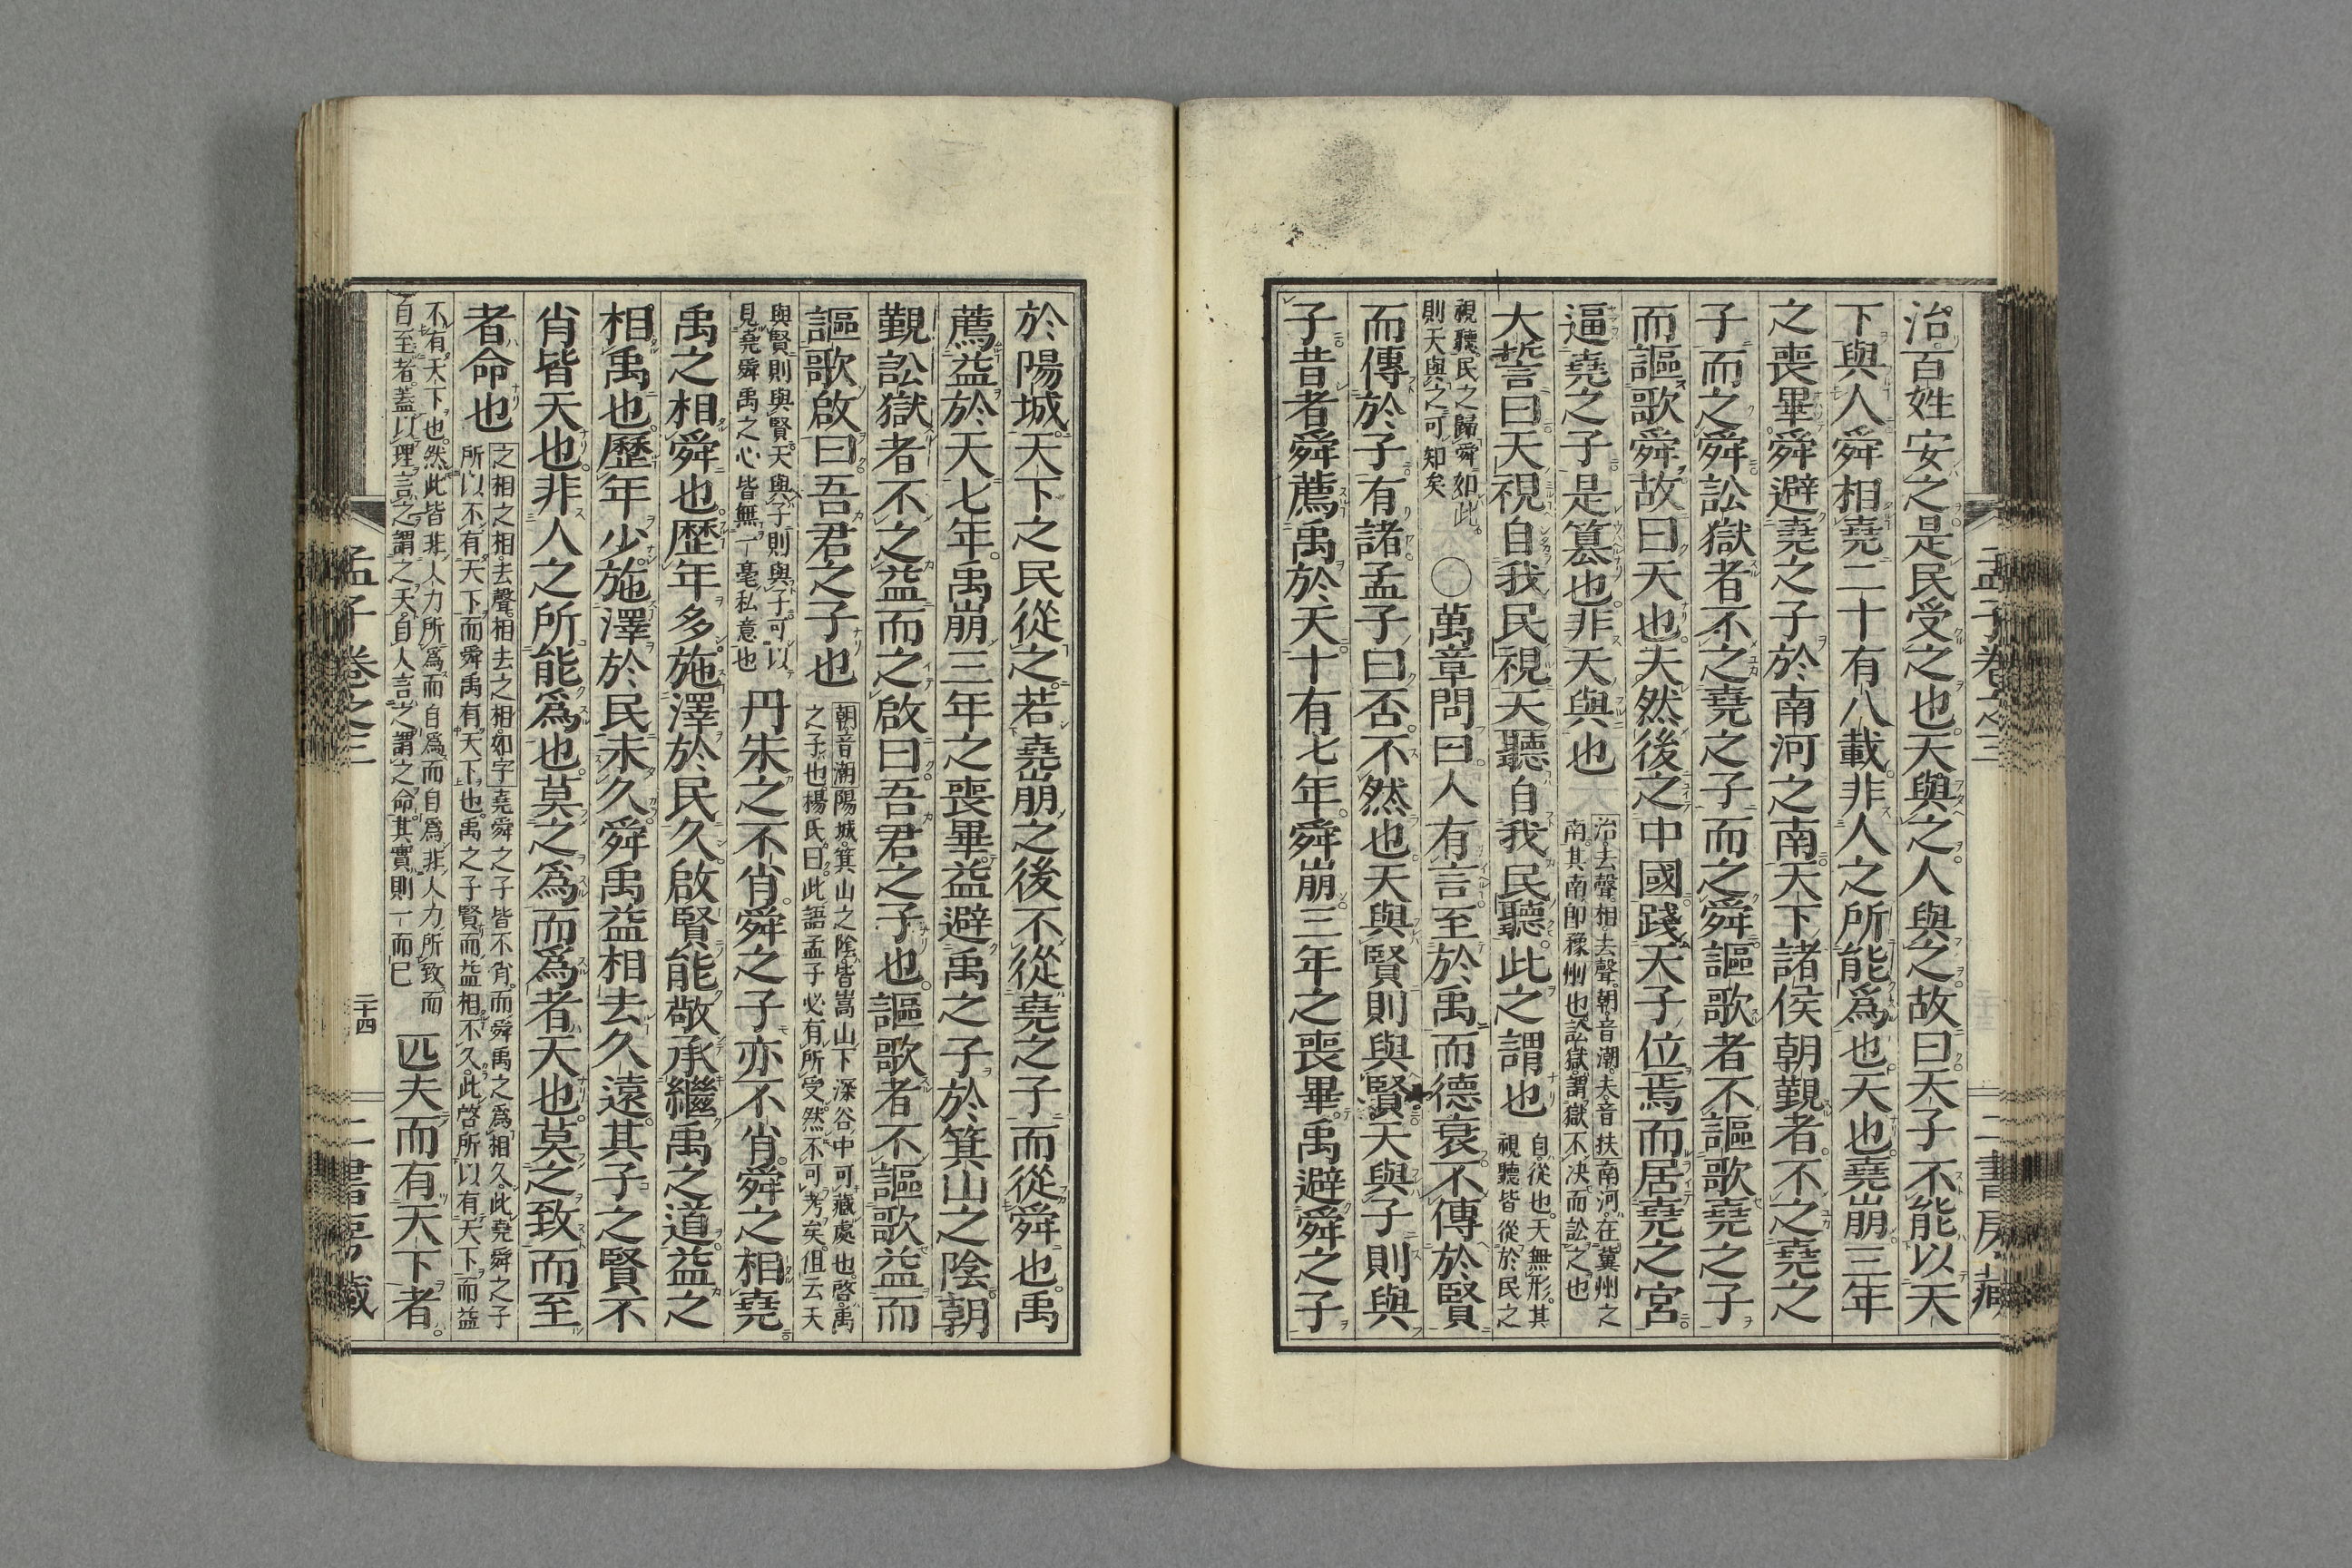 治百姓安之是民受之也天與之人與之故曰天子不能以天
下與人舜相堯二十有八載非人之所能爲也天也堯崩三年
之喪畢舜避堯之子於南河之南天下諸侯朝覲者不之堯之
子而之舜訟獄者不之堯之子而之舜謳歌者不謳歌堯之子
而謳歌舜故曰天也夫然後之中國踐天子位焉而居堯之宮
逼堯之子是篡也非天與也
治去聲相去聲朝音潮夫音扶南河在冀州之
南其南卽豫州也訟獄謂獄不决而訟之也
大誓曰天視自我民視天聽自我民聽此之謂也
自從也天無形其
視聽皆從於民之
視聽民之歸舜如此
則天與之可知矣
〇萬章問曰人有言至於禹而德衰不傳於賢
而傳於子有諸孟子曰否不然也天與賢則與賢天與子則與
子昔者舜薦禹於天十有七年舜崩三年之喪畢禹避舜之子
孟子卷之三
二書房藏
於陽城天下之民從之若堯崩之後不從堯之子而從舜也禹
薦益於天七年禹崩三年之喪畢益避禹之子於箕山之陰朝
覲訟獄者不之益而之啟曰吾君之子也謳歌者不謳歌益而
謳歌啟曰吾君之子也
朝音潮陽城箕山之陰皆嵩山下深谷中可藏處也啓禹
之子也楊氏曰此語孟子必有所受然不可考矣但云天
與賢則與賢天與子則與子可以
見堯舜禹之心皆無一毫私意也
丹朱之不肖舜之子亦不肖舜之相堯
禹之相舜也歷年多施澤於民久啟賢能敬承繼禹之道益之
相禹也歷年少施澤於民未久舜禹益相去久遠其子之賢不
肖皆天也非人之所能爲也莫之爲而爲者天也莫之致而至
者命也
之相之相去聲相去之相如字堯舜之子皆不肖而舜禹之爲相久此堯舜之子
所以不有天下而舜禹有天下也禹之子賢而益相不久此啓所以有天下而益
不有天下也然此皆非人力所爲而自爲而自爲非人力所致而
自至者蓋以理言之謂之天自人言之謂之命其實則一而已
匹夫而有天下者
孟子卷之三
二十四
二書房藏